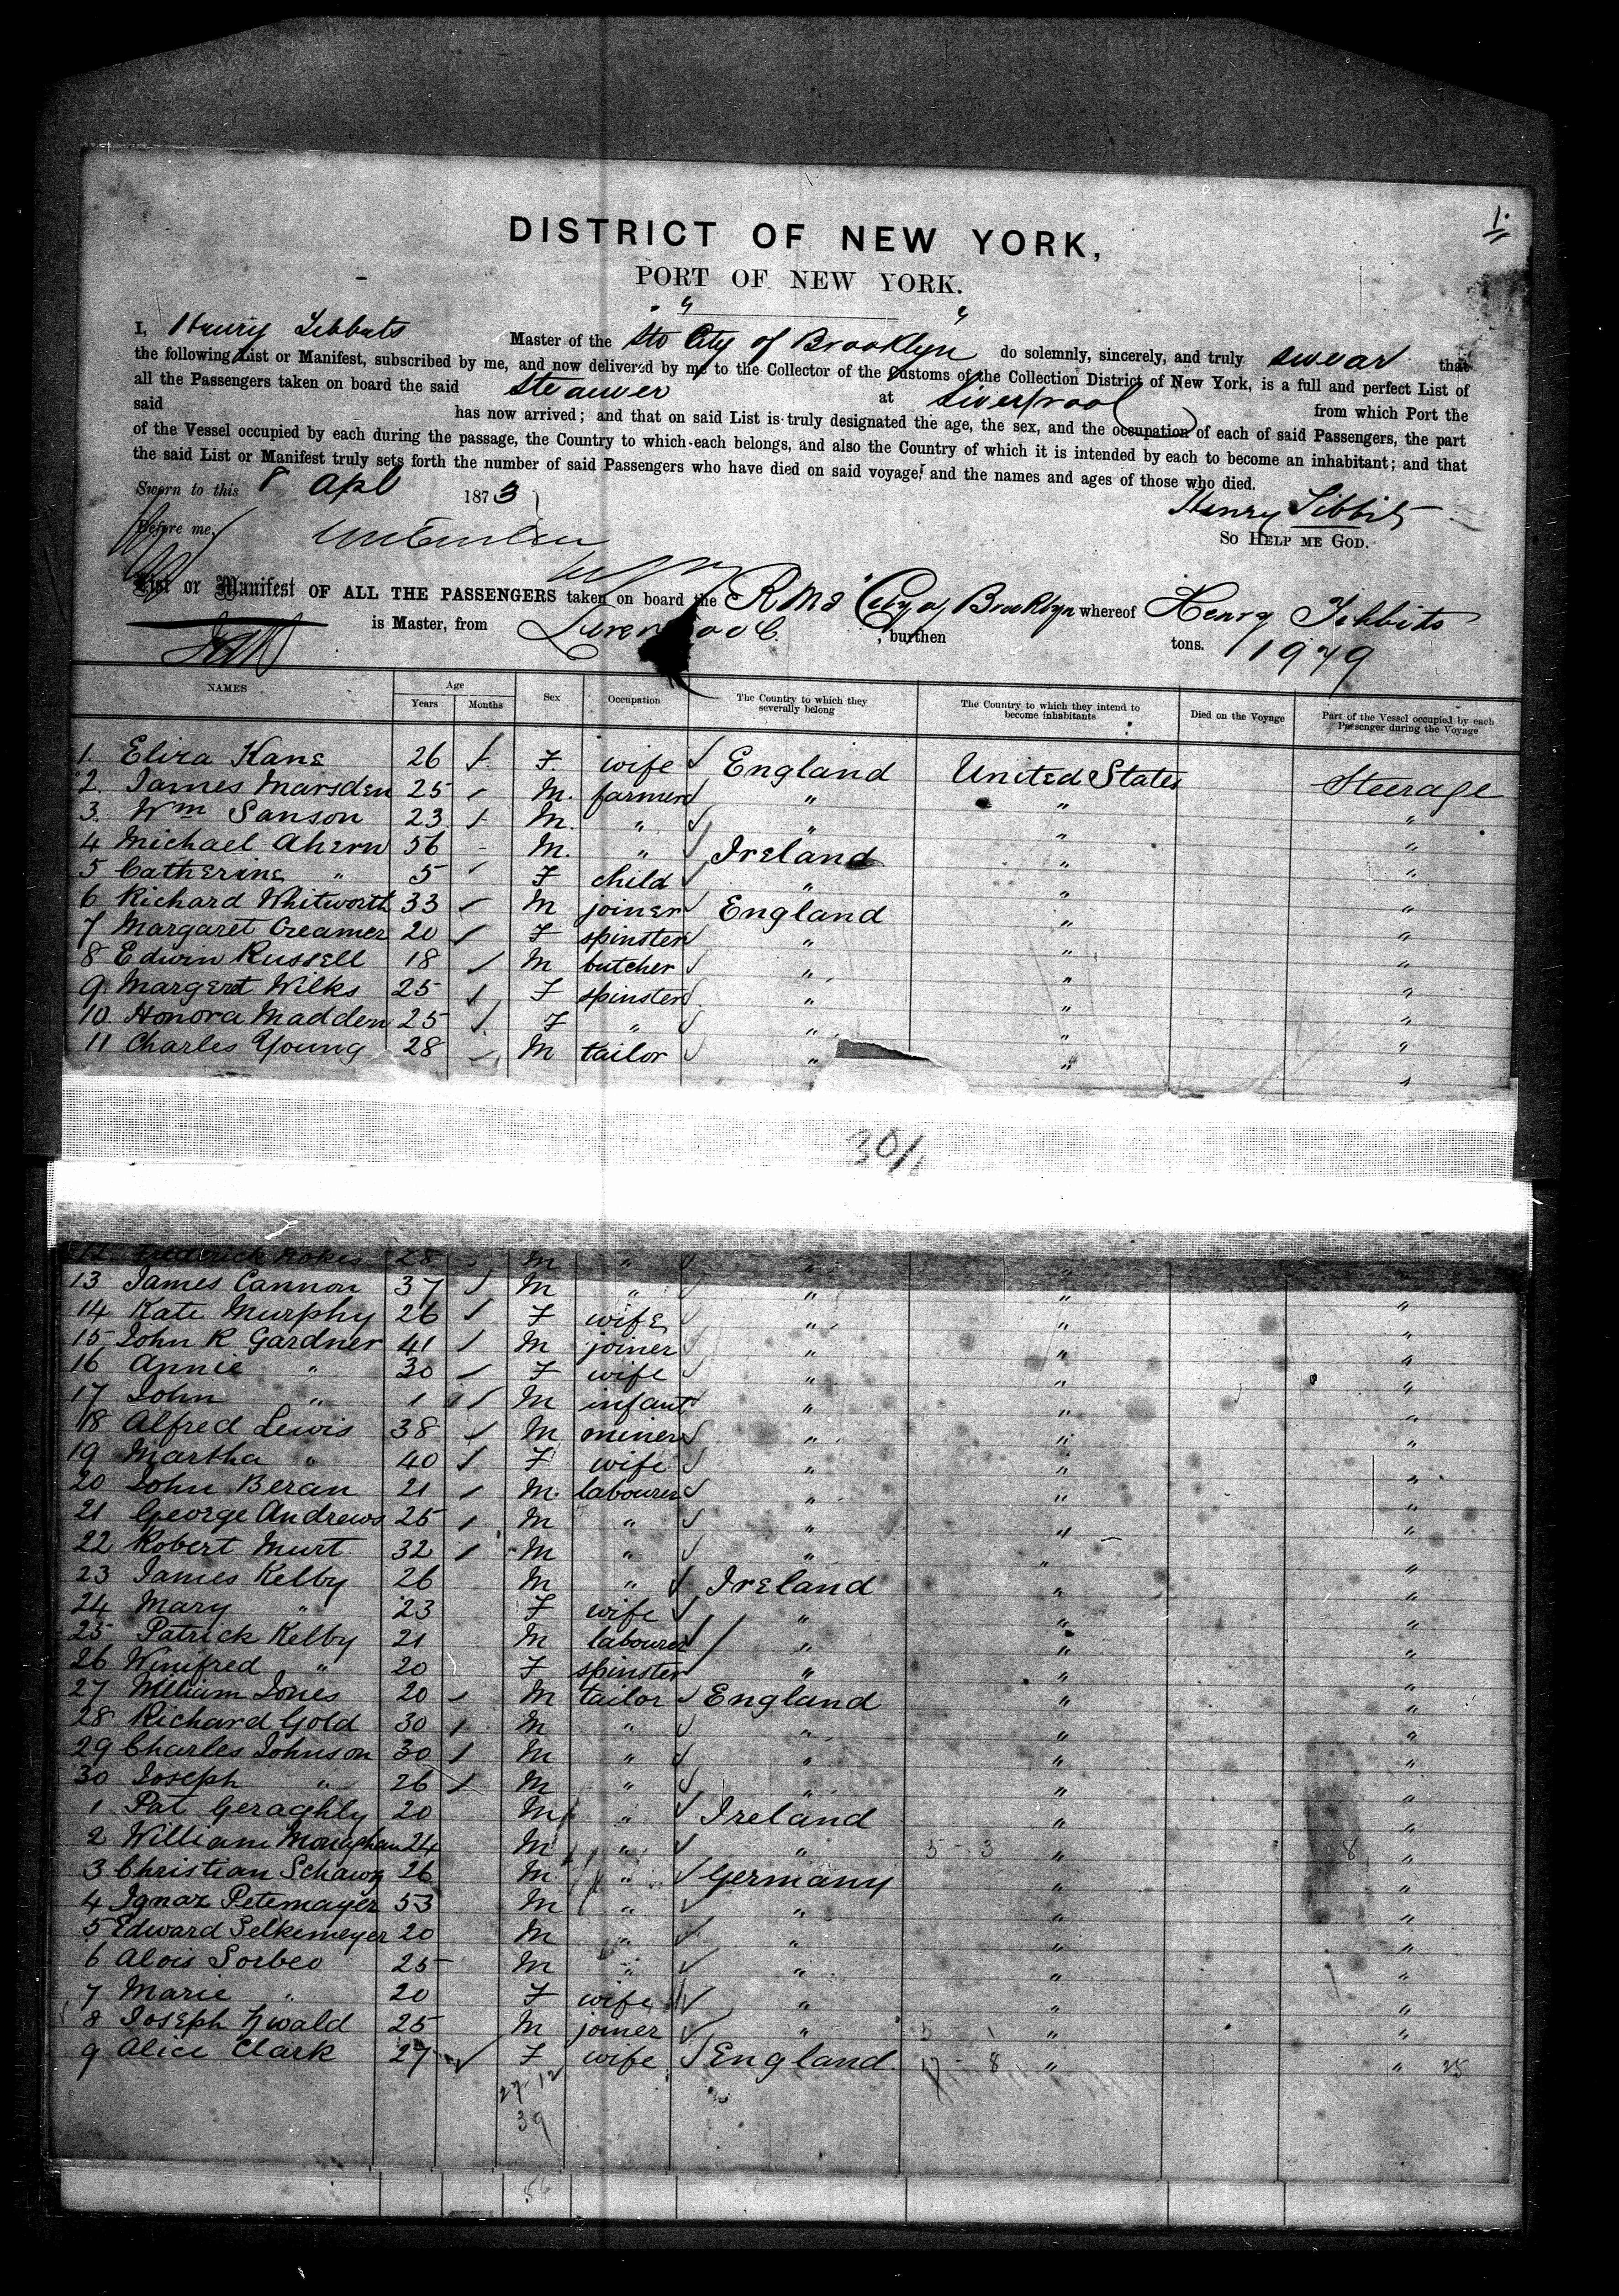 1.
DISTRICT OF NEW YORK,
PORT OF NEW YORK.
I, Henry Tebbuts Master of the City of Brooklyn do solemnly, sincerely, and truly swear that
the following List or Manifest, subscribed by me, and now delivered by me to the Collector of the Customs of the Collection District of New York, is a full and perfect List of
all the Passengers taken on board the said Steamer at Liverpool from which Port the
said has now arrived; and that on said List is truly designated the age, the sex, and the occupation of each of said Passengers, the part
of the Vessel occupied by each during the passage, the Country to which each belongs, and also the Country of which it is intended by each to become an inhabitant; and that
the said List or Manifest truly sets forth the number of said Passengers who have died on said voyage, and the names and ages of those who died.
Sworn to this 8 Apl 1873
Henry Tibbits
Before me,
So HELP ME GOD.
List or Manifest OF ALL THE PASSENGERS taken on board the RMS "City of Brooklyn whereof Henry Tibbits
is Master, from Liverpool, burthen tons. 1979
NAMES Age Years Months Sex Occupation The Country to which they severally belong The Country to which they intend to become inhabitants Died on the Voyage Part of the Vessel occupied by each Passenger during the Voyage
1. Eliza Kane 26 F. wife England United States Steerage
2. James Marsden 25 M. farmer " " "
3. Wm Sanson 23 M. " " " "
4 Michael Ahern 56 M. " Ireland " "
5 Catherine " 5 F child " " "
6 Richard Whitworth 33 M joiner England " "
7 Margaret Creamer 20 F spinster " " "
8 Edwin Russell 18 M butcher " " "
9. Margeret Wilks 25 F spinster " " "
10 Honora Madden 25 F " " " "
11 Charles Young 28 M tailor " " "
30/1
12 Frederick Nokes 28 M " " "
13 James Cannon 37 M " " " "
14 Kate Murphy 26 F wife " " "
15 John R Gardner 41 M joiner " " "
16 Annie " 30 F wife " " "
17 John " 1 M infant " " "
18 Alfred Lewis 38 M miner " " "
19 Martha " 40 F wife " " "
20 John Beran 21 M. labourer " " "
21 George Andrews 25 M " " " "
22 Robert Murt 32 M " " " "
23 James Kelby 26 M " Ireland " "
24 Mary " 23 F wife " " "
25 Patrick Kelby 21 M labourer " " "
26 Winifred " 20 F spinster " " "
27 William Jones 20 M tailor England " "
28 Richard Gold 30 M " " " "
29 Charles Johnson 30 M " " " "
30 Joseph " 26 M " " " "
1 Pat Geraghly 20 M " Ireland " "
2 William Monaghan 24 M " " 5 - 3 " 8 "
3 Christian Schawz 26 M " Germany " "
4 Ignaz Petemayer 53 M " " " "
5 Edward Selkemeyer 20 M " " " "
6 Alois Sorbeo 25 M " " " "
7 Marie " 20 F wife " " "
8 Joseph 25 M joiner " " "
9 Alice Clark 27 F wife England 17 - 8 " " 25
27-12
39
56